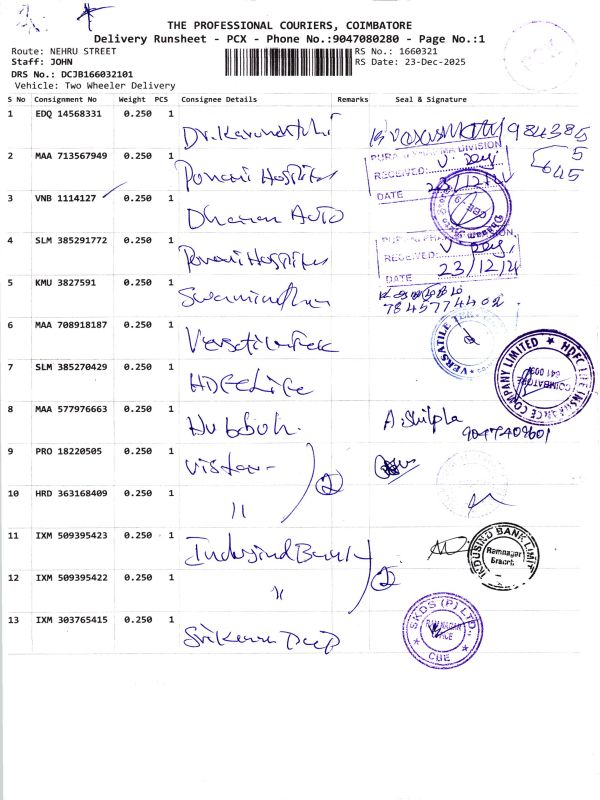 THE PROFESSIONAL COURIERS, COIMBATORE
Delivery Runsheet - PCX - Phone No.:9047080280 - Page No.:1
Route: NEHRU STREET
Staff: JOHN
DRS No.: DCJB166032101
Vehicle: Two Wheeler Delivery
RS No.: 1660321
RS Date: 23-Dec-2025
S No Consignment No Weight PCS Consignee Details Remarks Seal & Signature
1 EDQ 14568331 0.250 1 Dr. 984385
5
645
2 MAA 713567949 0.250 1 Ponani Hospital
DIVISION
RECEIVED:
DATE 23/12/
3 VNB 1114127 0.250 1 Dharan Auto
4 SLM 385291772 0.250 1 Ponani Hospital
RECEIVED:
DATE 23/12/
5 KMU 3827591 0.250 1
7845774402
6 MAA 708918187 0.250 1 VERSATILE
7 SLM 385270429 0.250 1 HDFC Life
HDFC LIFE INSURANCE COMPANY LIMITED
COIMBATORE
8 MAA 577976663 0.250 1 A. Shilpa
9047409601
9 PRO 18220505 0.250 1 2
10 HRD 363168409 0.250 1 "
11 IXM 509395423 0.250 1 Indusind Bank
INDUSIND BANK LIMIT
Ramnagar
Branch
12 IXM 509395422 0.250 1 " 2
13 IXM 303765415 0.250 1
SKDS (P) LTD.,
CBE